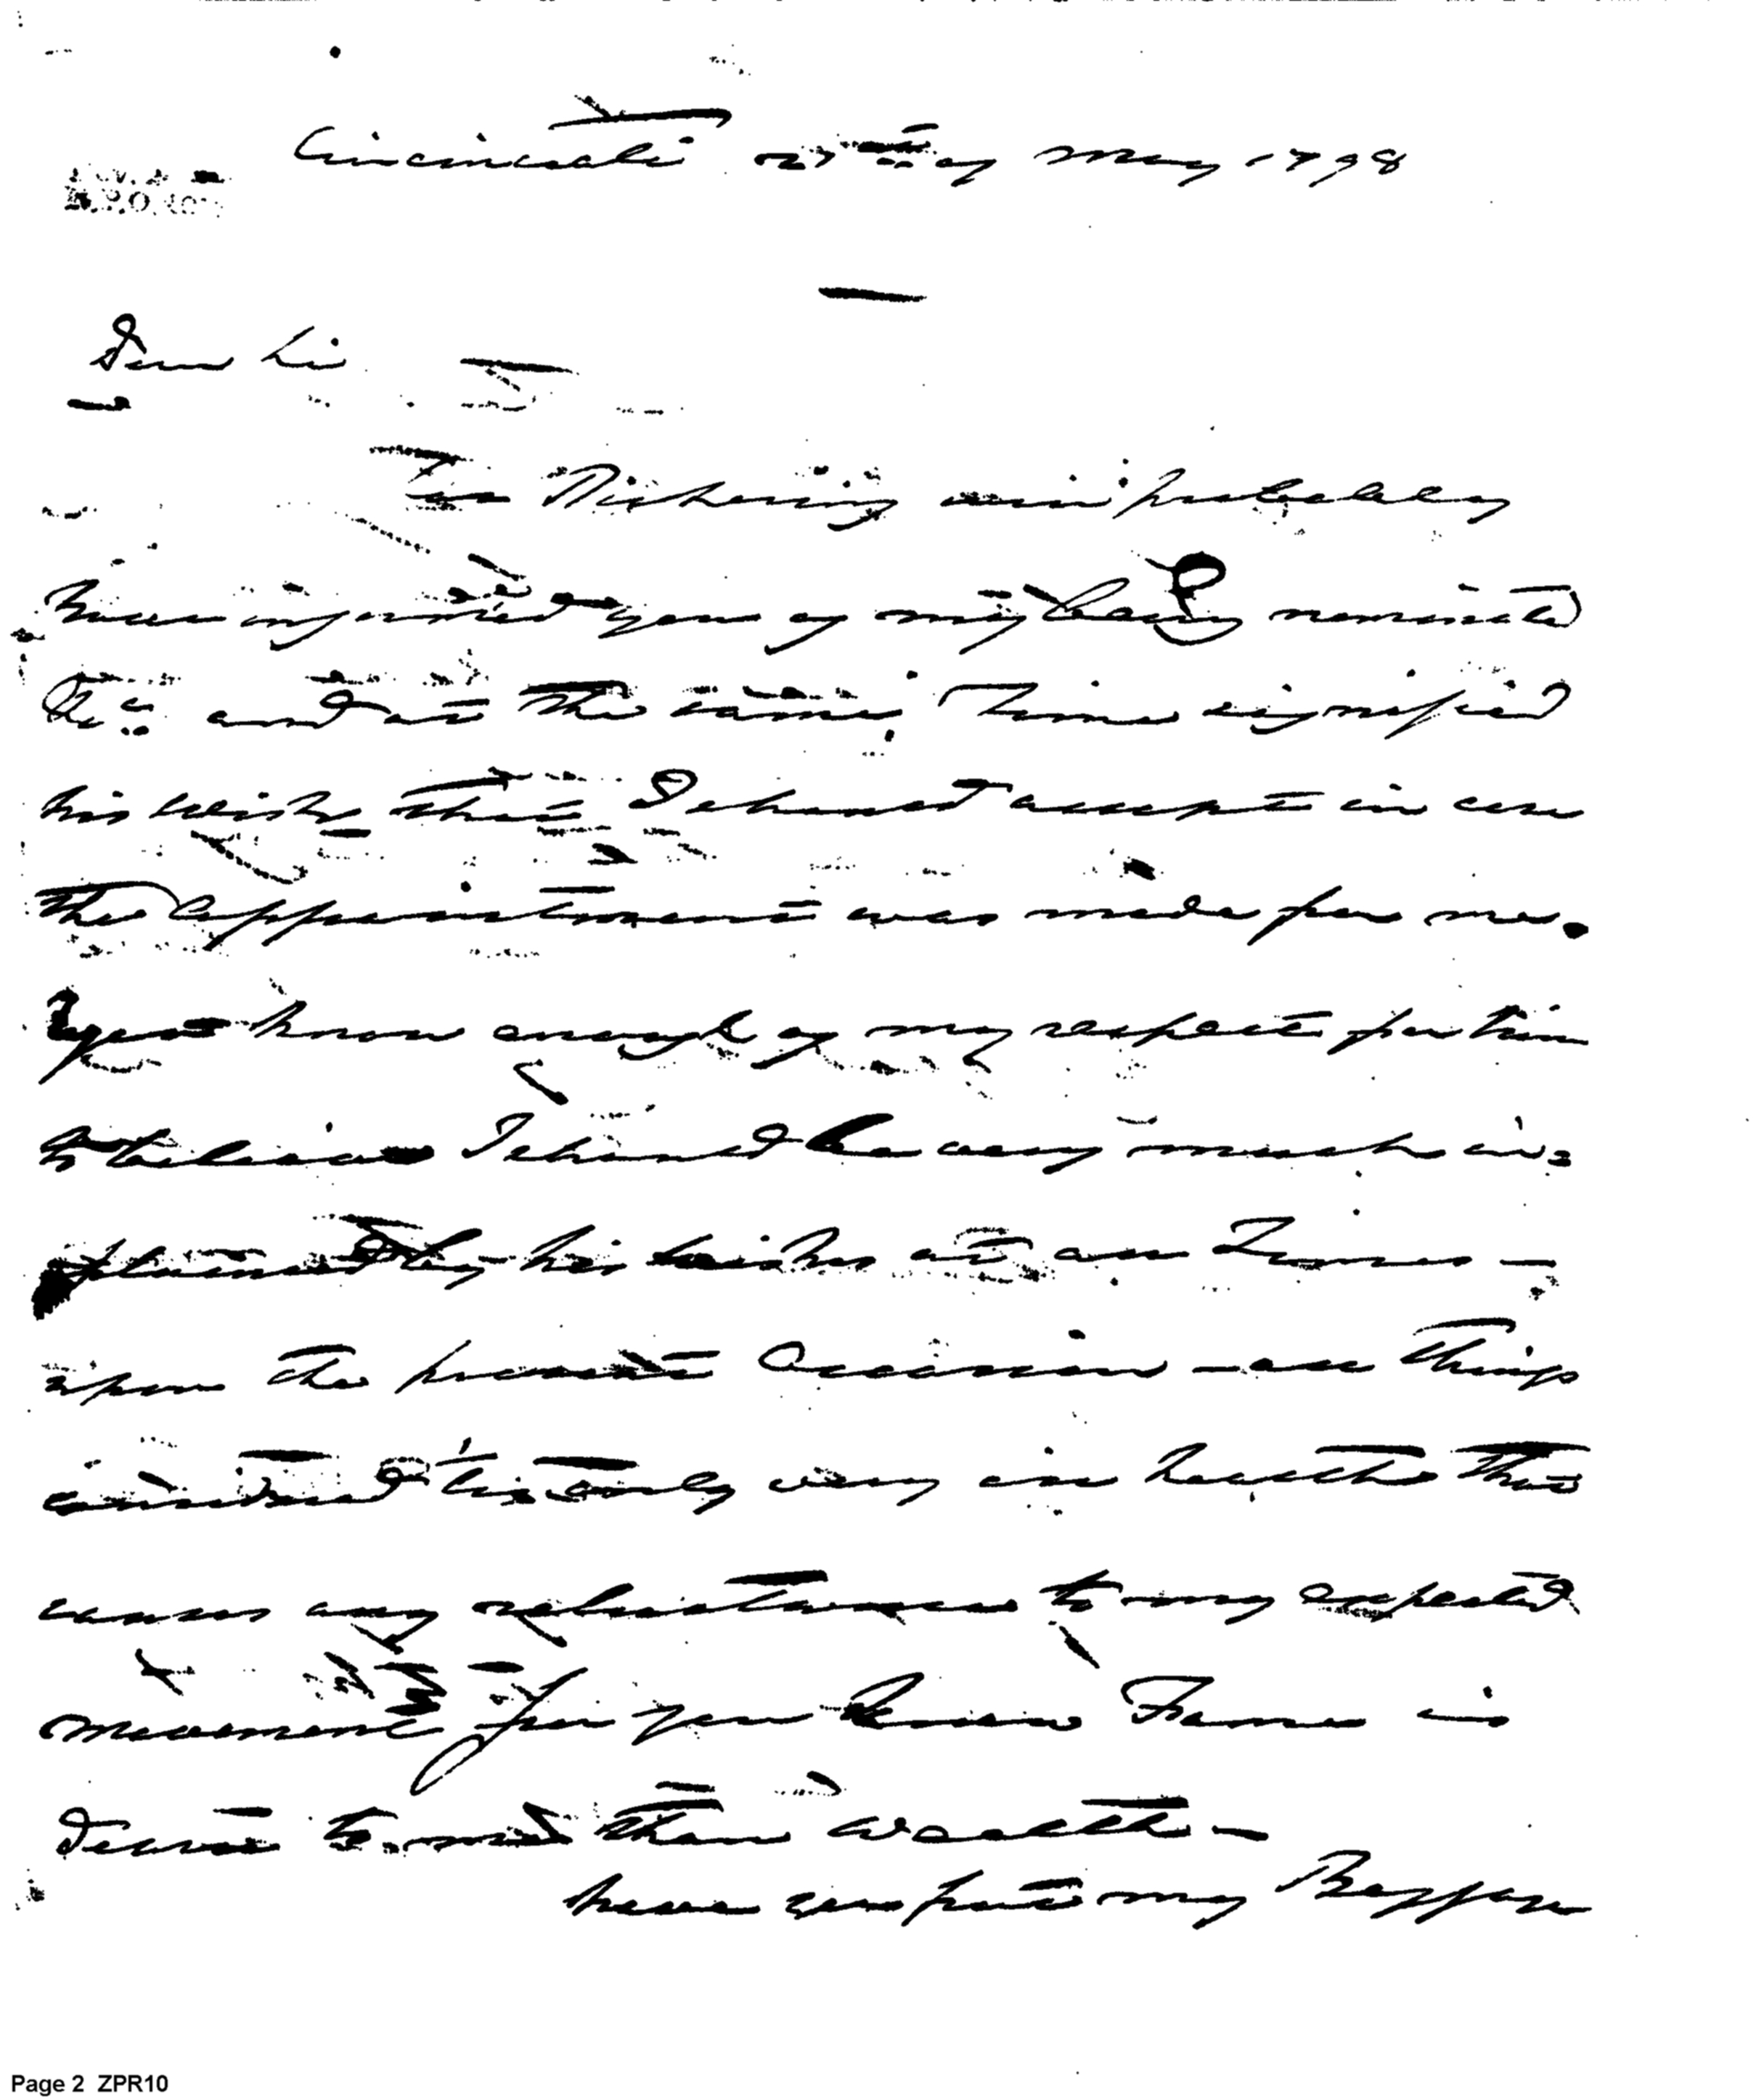 Cincinnati 27th of May 1798
Dear Sir
Tim Pickering will probably
have informed you of my being nominated
&c and at the same time signified
his wish that I should accept in case
the appointment was made for me.
you know enough of my respect for him
to believe I should be very much in=
fluenced by his wishes at all Times —
upon the present Occasion — all things
considered his only
causes any reluctance to my expected
movement for you know Fame is
Dearer to me than wealth —
have you put my
Page 2 ZPR10